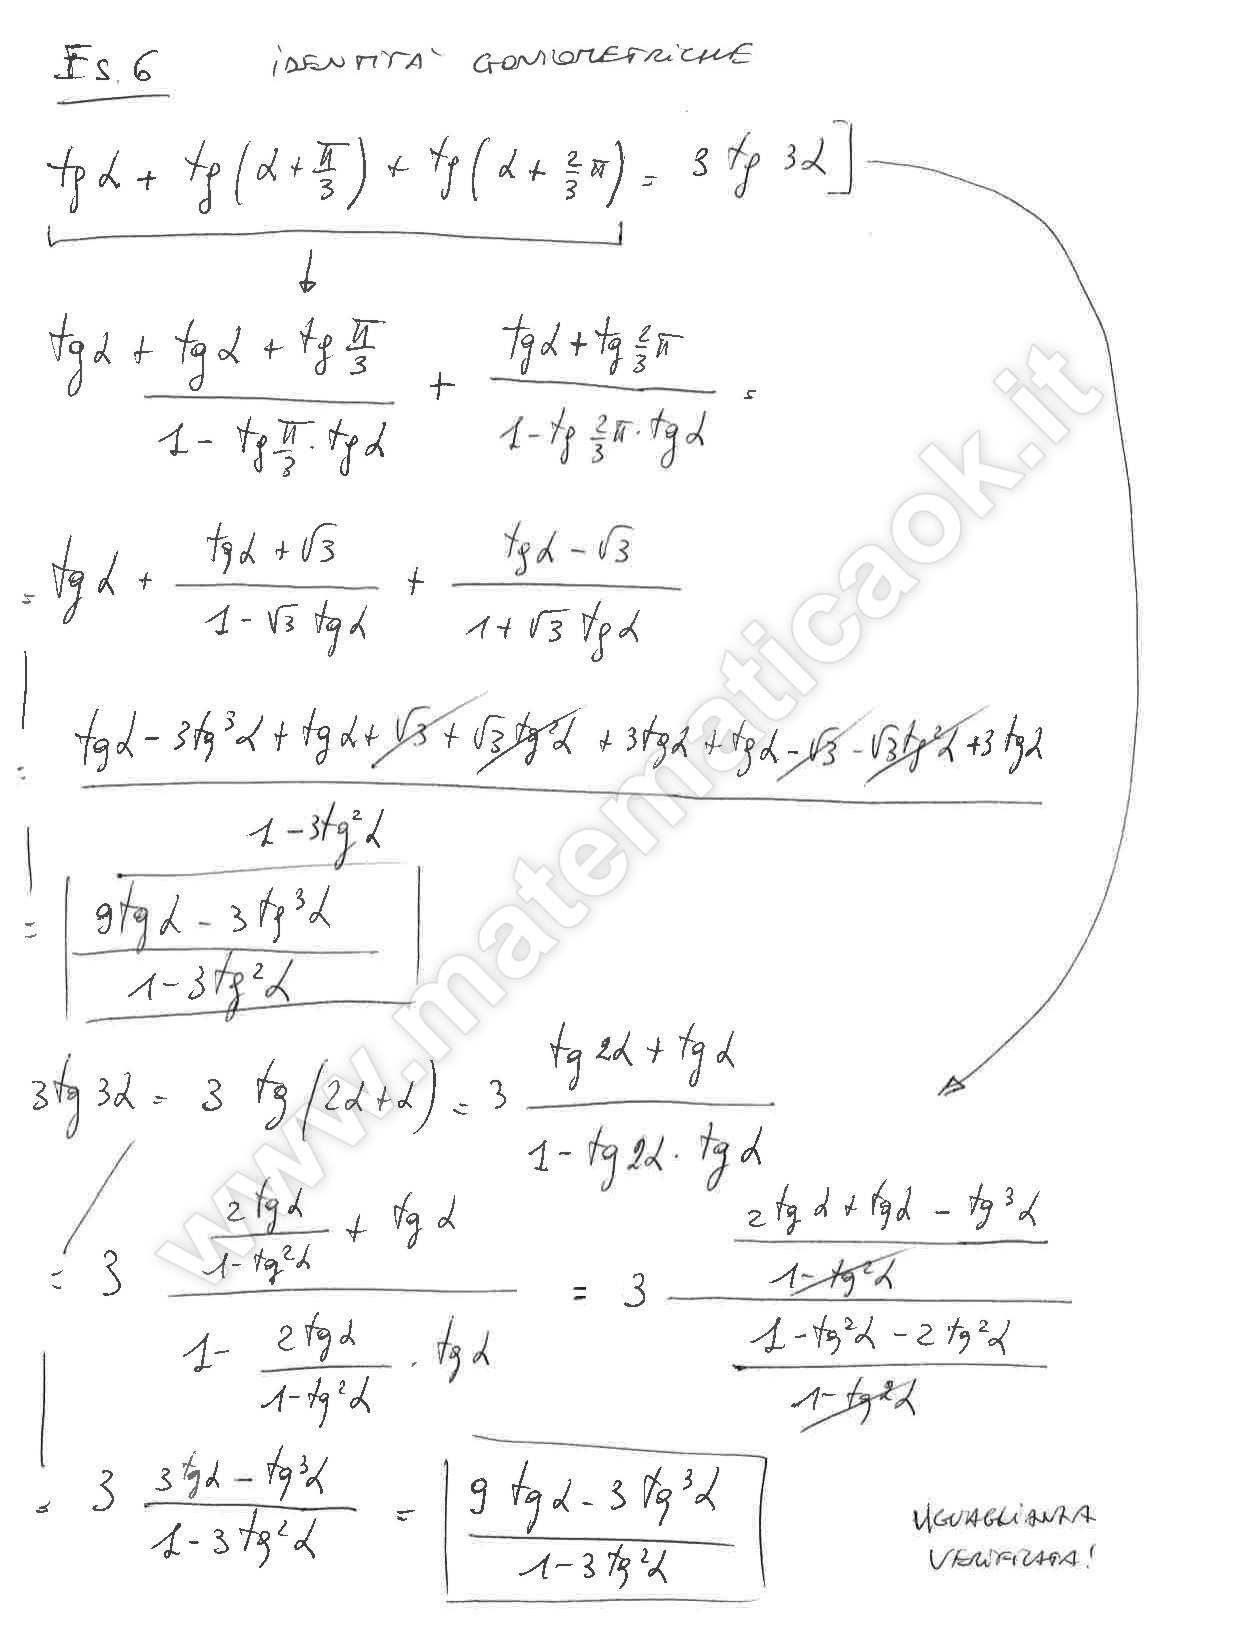 Es. 6 IDENTITÀ GONIOMETRICHE
tg α + tg(α + π/3) + tg(α + 2/3 π) = 3 tg 3α]
tg α + (tg α + tg π/3)/(1 - tg π/3 · tg α) + (tg α + tg 2/3 π)/(1 - tg 2/3 π · tg α) =
= tg α + (tg α + √3)/(1 - √3 tg α) + (tg α - √3)/(1 + √3 tg α)
= (tg α - 3tg³α + tg α + √3 + √3 tg²α + 3tg α + tg α - √3 - √3 tg²α + 3tg α)/(1 - 3tg²α)
= (9tg α - 3tg³α)/(1 - 3tg²α)
3tg 3α = 3 tg(2α + α) = 3 (tg 2α + tg α)/(1 - tg 2α · tg α)
= 3 (2tg α/(1 - tg²α) + tg α)/(1 - 2tg α/(1 - tg²α) · tg α) = 3 ((2tg α + tg α - tg³α)/(1 - tg²α))/((1 - tg²α - 2tg²α)/(1 - tg²α))
= 3 (3tg α - tg³α)/(1 - 3tg²α) = (9 tg α - 3 tg³α)/(1 - 3tg²α)
UGUAGLIANZA
VERIFICATA!
www.matematicaok.it